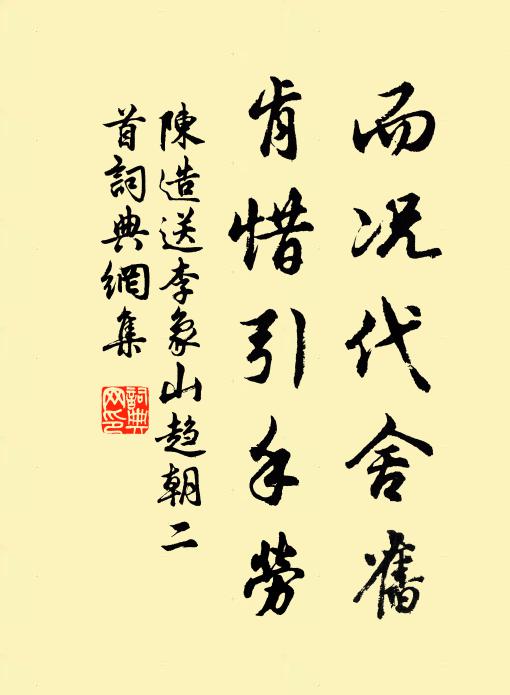 而况代舍舊
肯惜引手勞
陳造送李象山趋朝二
首詞典網集
詞典
网印